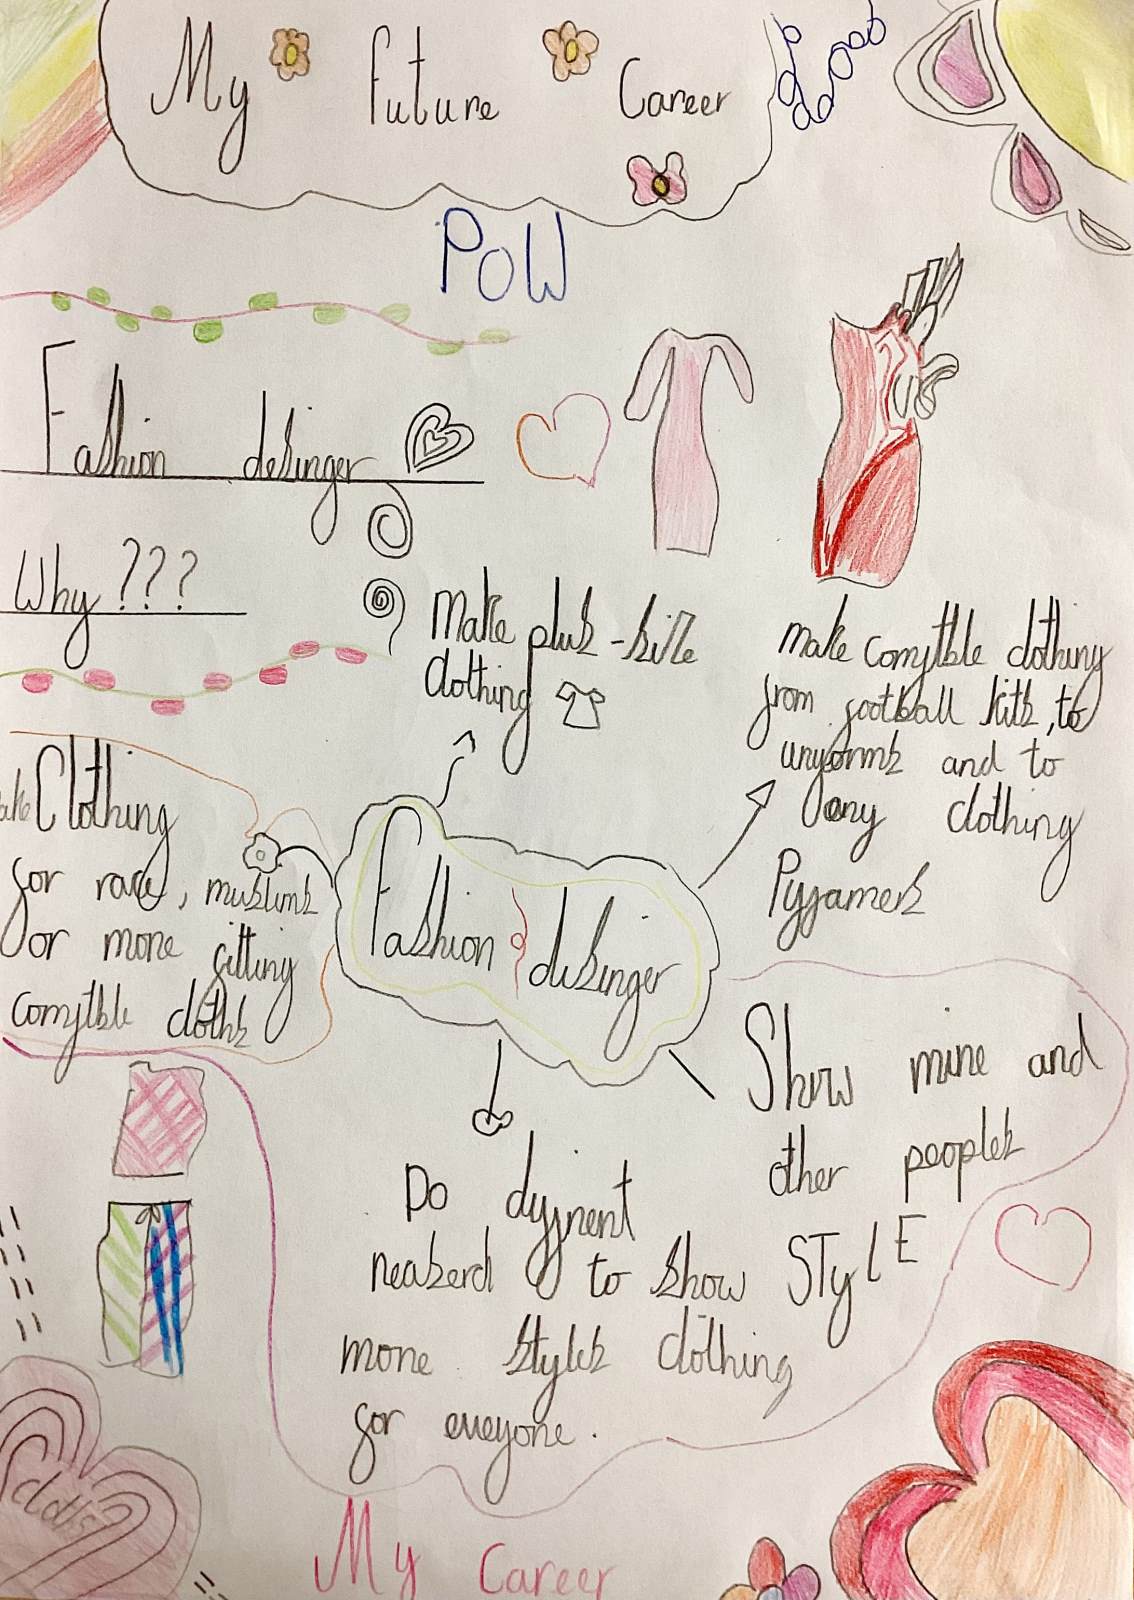 My future Career
POW
Fashion desinger
Why ???
Make plus-size
clothing
make comftble clothing
from football kits, to
unyorms and to
any clothing
Pyjamers
Clothing
for race, muslims
or more fitting
comftble cloths
Fashion desinger
Show mine and
other peoples
STylE
Do dyfrent
reaserch to show
more styles clothing
for eveyone.
cloths
My Career